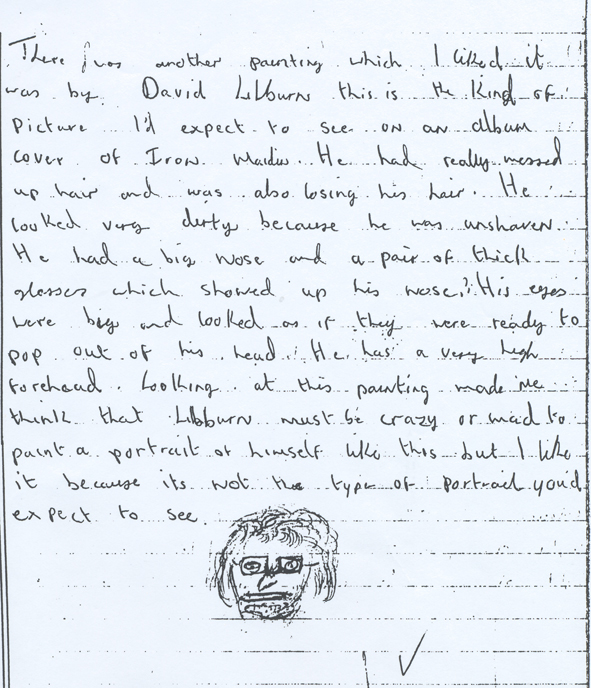 There was another painting which I liked it
was by David Lilburn this is the kind of
picture I'd expect to see on an album
cover of Iron Madin. He had really messed
up hair and was also losing his hair. He
looked very dirty because he was unshaven.
He had a big nose and a pair of thick
glasses which showed up his nose. His eyes
were big and looked as if they were ready to
pop out of his head. He has a very high
forehead. Looking at this painting made me
think that Libburn must be crazy or mad to
paint a portrait of himself like this but I like
it because its not the type of portrait you'd
expect to see.